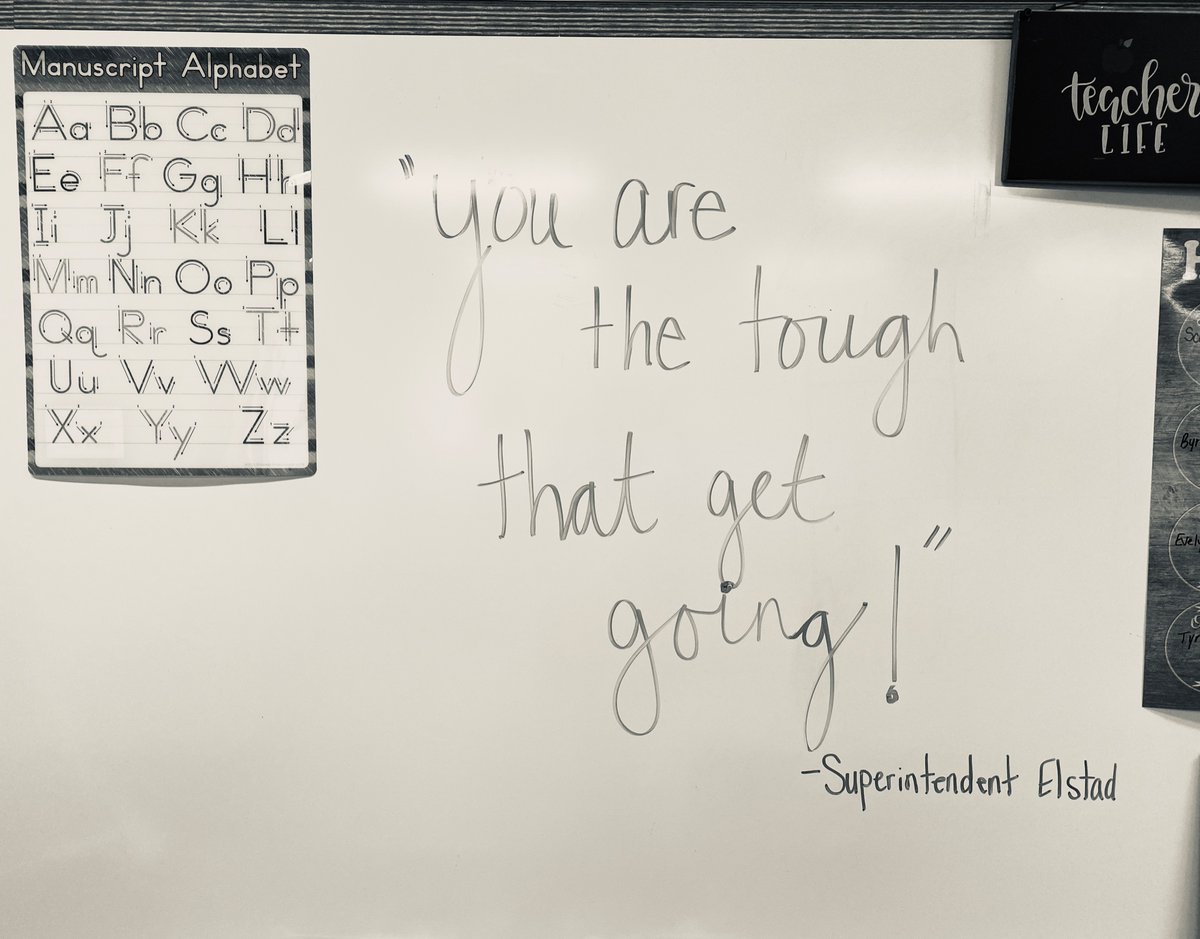 Manuscript Alphabet
Aa Bb Cc Dd
Ee Ff Gg Hh
Ii Jj Kk Ll
Mm Nn Oo Pp
Qq Rr Ss Tt
Uu Vv Ww
Xx Yy Zz
"you are
the tough
that get
going!"
-Superintendent Elstad
teacher
LIFE